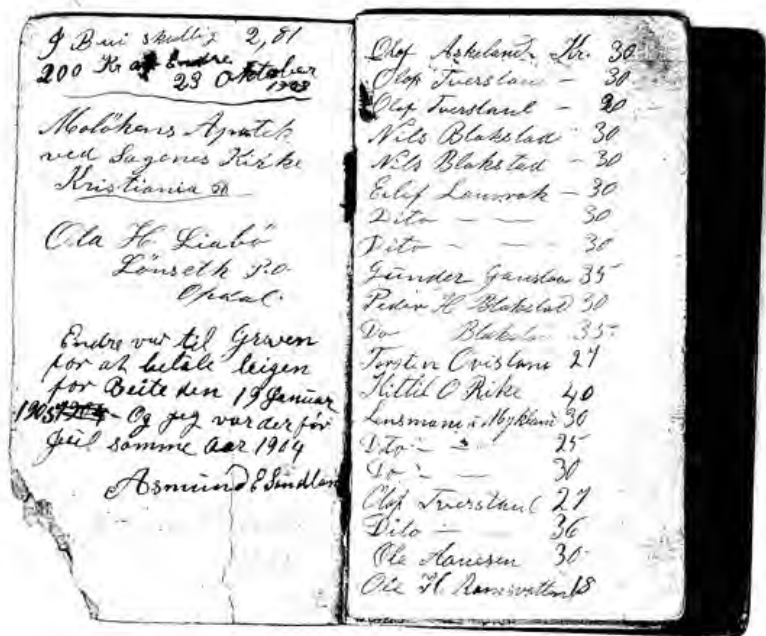 J Bui skuldig 2,81
200 Kr af Endre
23 Oktober
1903
Molökens Apotek
ved Sagenes Kirke
Kristiania
Ola H. Liabö
Lönseth P.O.
Opdal.
Endre var til Graven
for at betale leigen
for Beite den 19 Januar
1905 - Og jeg var der för
Juil somme Aar 1904
Asmund E Sandland
Olof Askeland. Kr. 30
Olof Tverstaul - 30
Olof Tverstaul -
Nils Blakstad 30
Nils Blakstad - 30
Eilef - 30
Dito — — 30
Dito - — 30
Gunder 35
Peder H Blakstad 30
Do 35
Torsten 27
Kittil O Rike 40
Lensmann i Myklam 30
Dito - 25
Do - — 30
Olof Tverstaul 27
Dito — — 36
Ole Hanesen 30
Ole H. 18